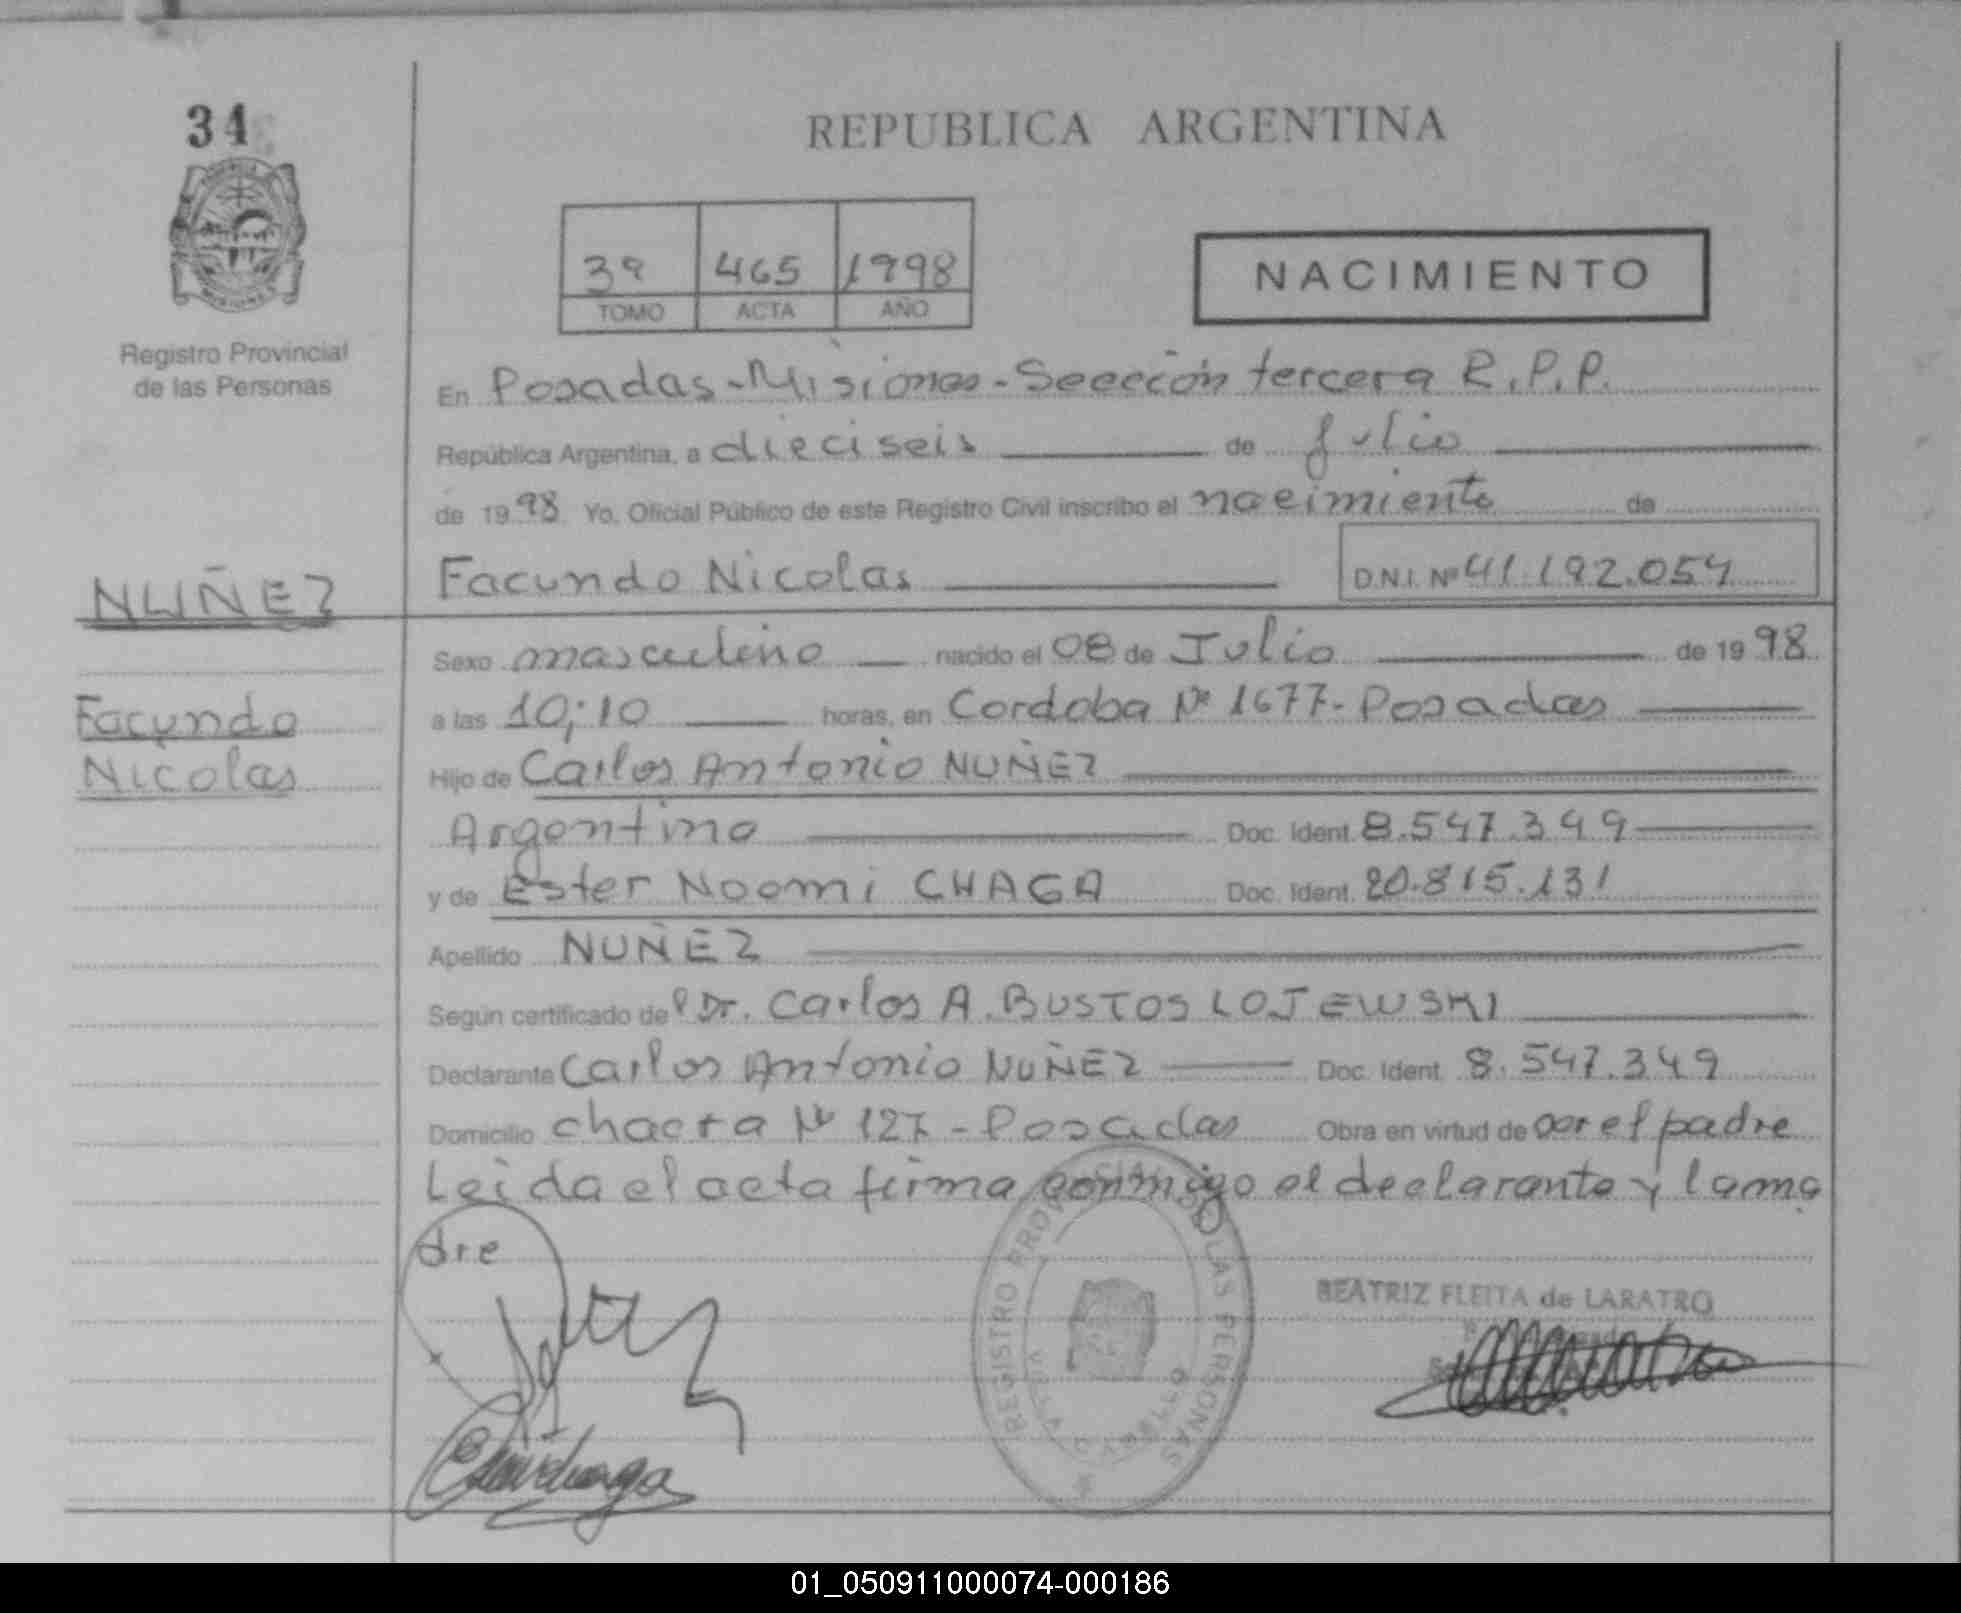 34
REPUBLICA ARGENTINA
39 465 1998
TOMO ACTA AÑO
NACIMIENTO
Registro Provincial
de las Personas
En Posadas-Misiones-Sección tercera R.P.P.
República Argentina, a dieciseis de Julio
de 1998 Yo, Oficial Público de este Registro Civil inscribo el nacimiento de
NUÑEZ
Facundo Nicolas D.N.I. Nº 41.192.054
Sexo masculino nacido el 08 de Julio de 1998
Facundo
a las 10:10 horas, en Cordoba Nº 1677-Posadas
Nicolas
Hijo de Carlos Antonio NUÑEZ
Argentino Doc. Ident. 8.547.349
y de Ester Noemi CHAGA Doc. Ident. 20.815.131
Apellido NUÑEZ
Según certificado del Dr. Carlos A. BUSTOS LOJEWSKI
Declarante Carlos Antonio NUÑEZ Doc. Ident. 8.547.349
Domicilio chacra Nº 127-Posadas Obra en virtud de por el padre
Leida el acta firma conmigo el declarante y la ma
dre
REGISTRO PROVINCIAL DE LAS PERSONAS
BEATRIZ FLEITA de LARATRO
01_050911000074-000186